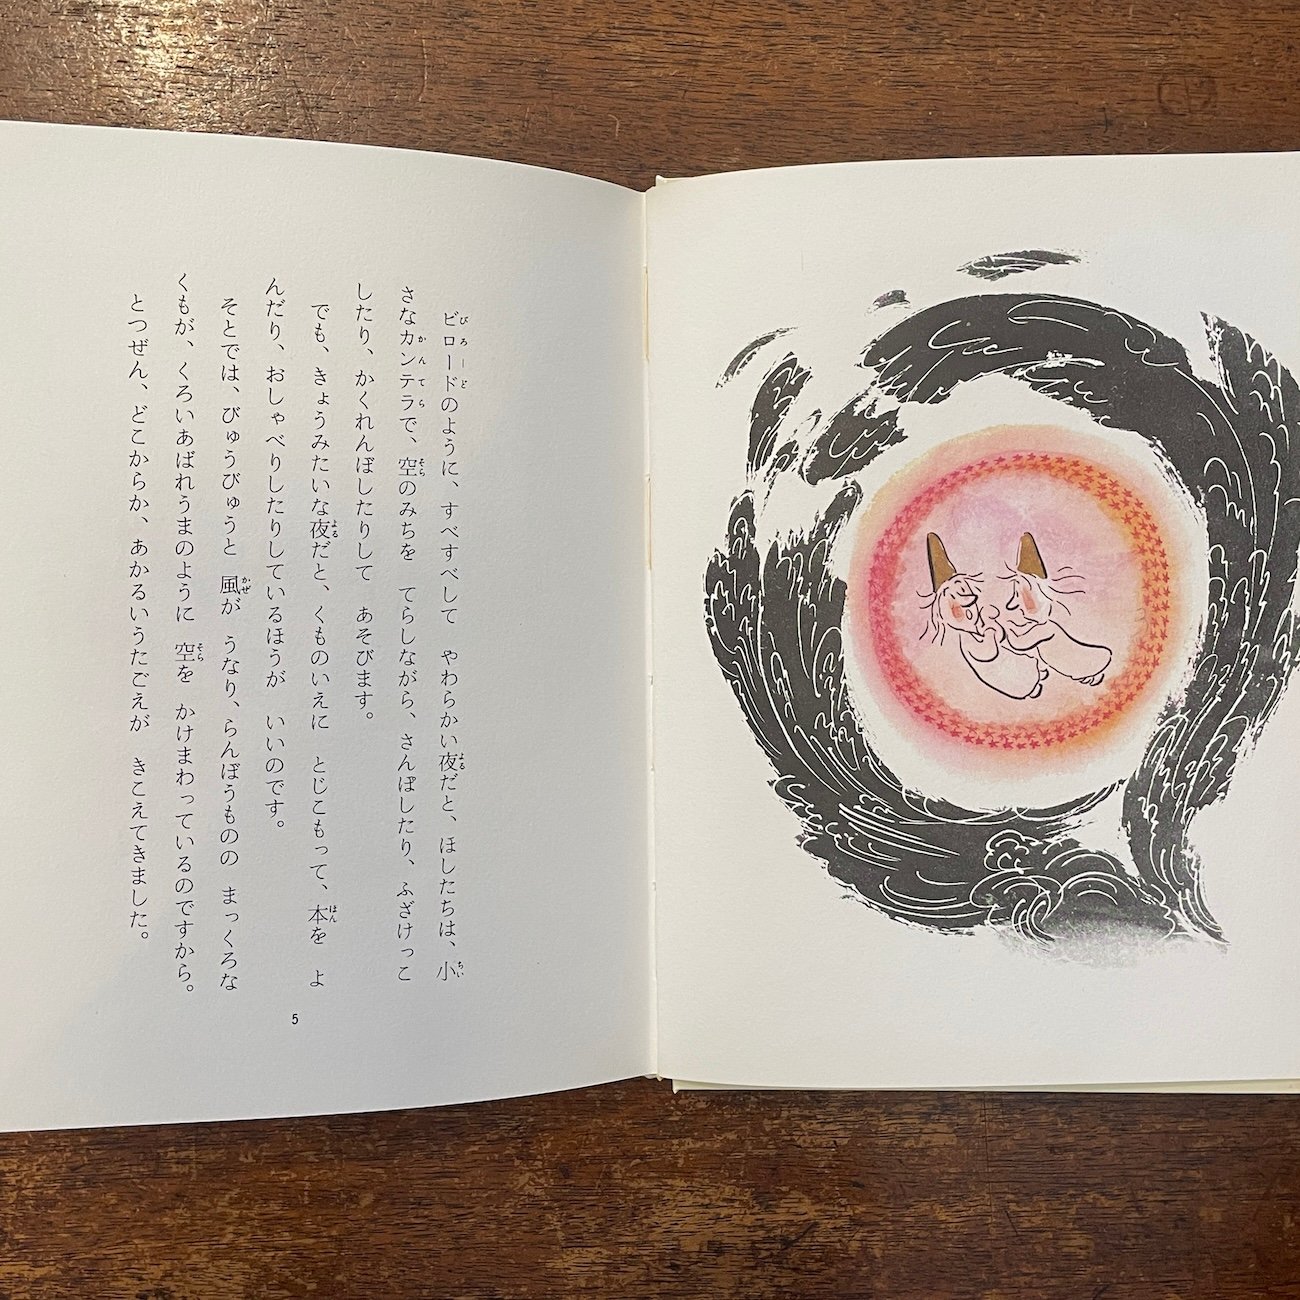 ビロードのように、すべすべして　やわらかい夜だと、ほしたちは、小
さなカンテラで、空のみちを　てらしながら、さんぽしたり、ふざけっこ
したり、かくれんぼしたりして　あそびます。
でも、きょうみたいな夜だと、くものいえに　とじこもって、本を　よ
んだり、おしゃべりしたりしているほうが　いいのです。
そとでは、びゅうびゅうと　風が　うなり、らんぼうものの　まっくろな
くもが、くろいあばれうまのように　空を　かけまわっているのですから。
とつぜん、どこからか、あかるいうたごえが　きこえてきました。
5